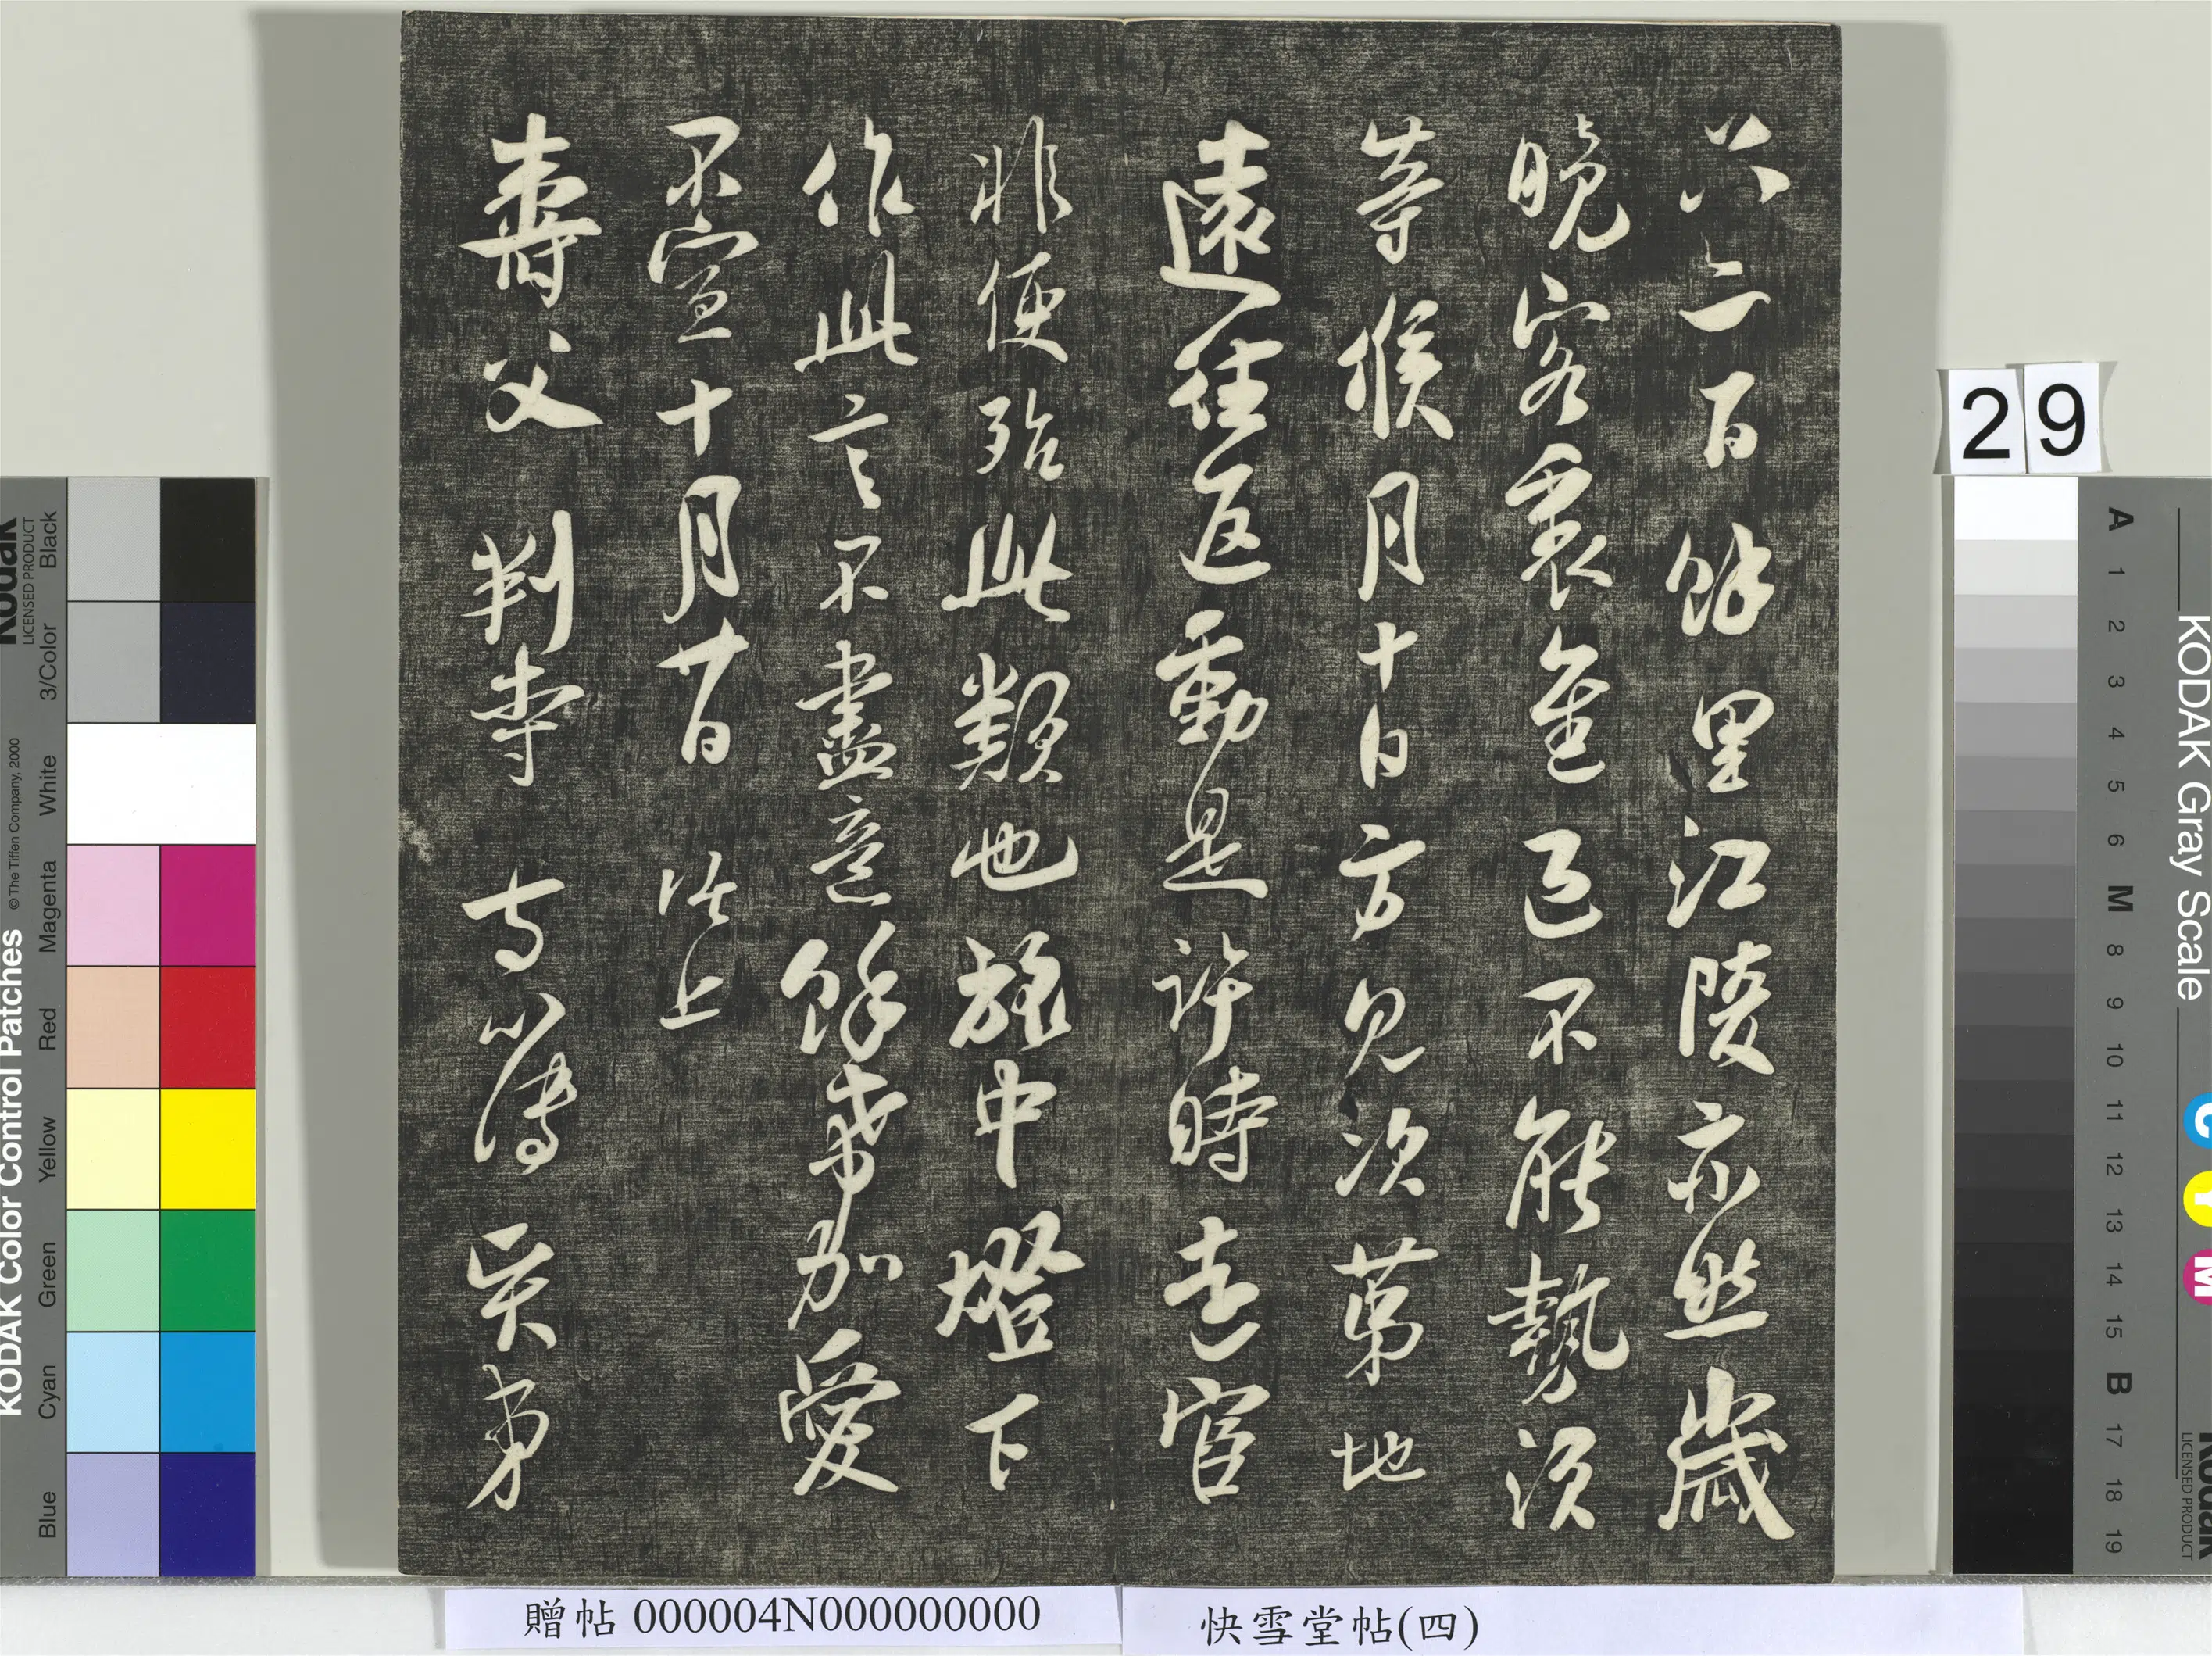 六百餘里江陵亦然歲
晚客裏已不能勢須
等候月十日方見次第地
遠往返動是許時去官
非便殆此類也旅中燈下
作此言不盡意餘希加愛
不宣十月廿日 上
壽父判寺 簿 賢弟
29
贈帖 000004N000000000
快雪堂帖(四)
KODAK Color Control Patches
© The Tiffen Company, 2000
Kodak
LICENSED PRODUCT
Blue Cyan Green Yellow Red Magenta White 3/Color Black
KODAK Gray Scale
C Y M
Kodak
LICENSED PRODUCT
A 1 2 3 4 5 6 M 8 9 10 11 12 13 14 15 B 17 18 19